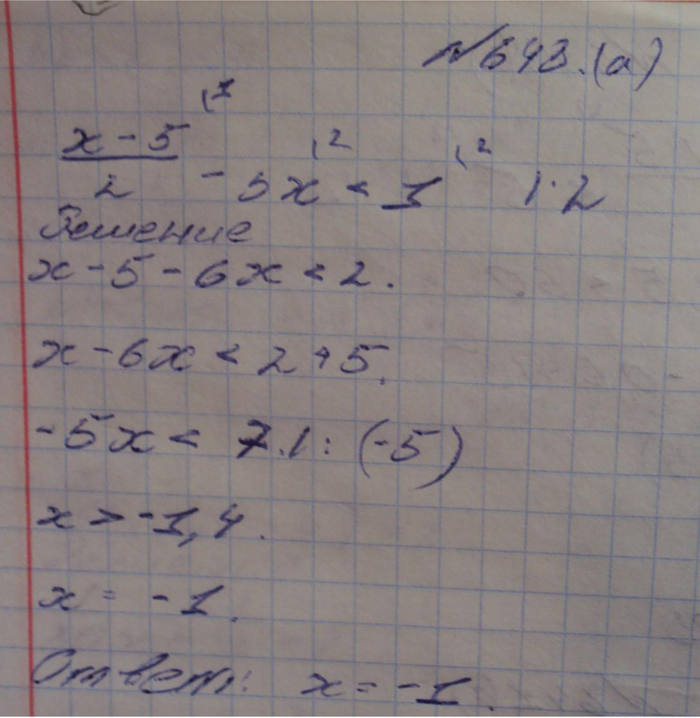 № 643.(а)
(x - 5)/2 \¹ - 3x \² < 1 \² |·2
Решение
x - 5 - 6x < 2.
x - 6x < 2 + 5.
-5x < 7. |: (-5)
x > -1,4.
x = -1.
Ответ: x = -1.